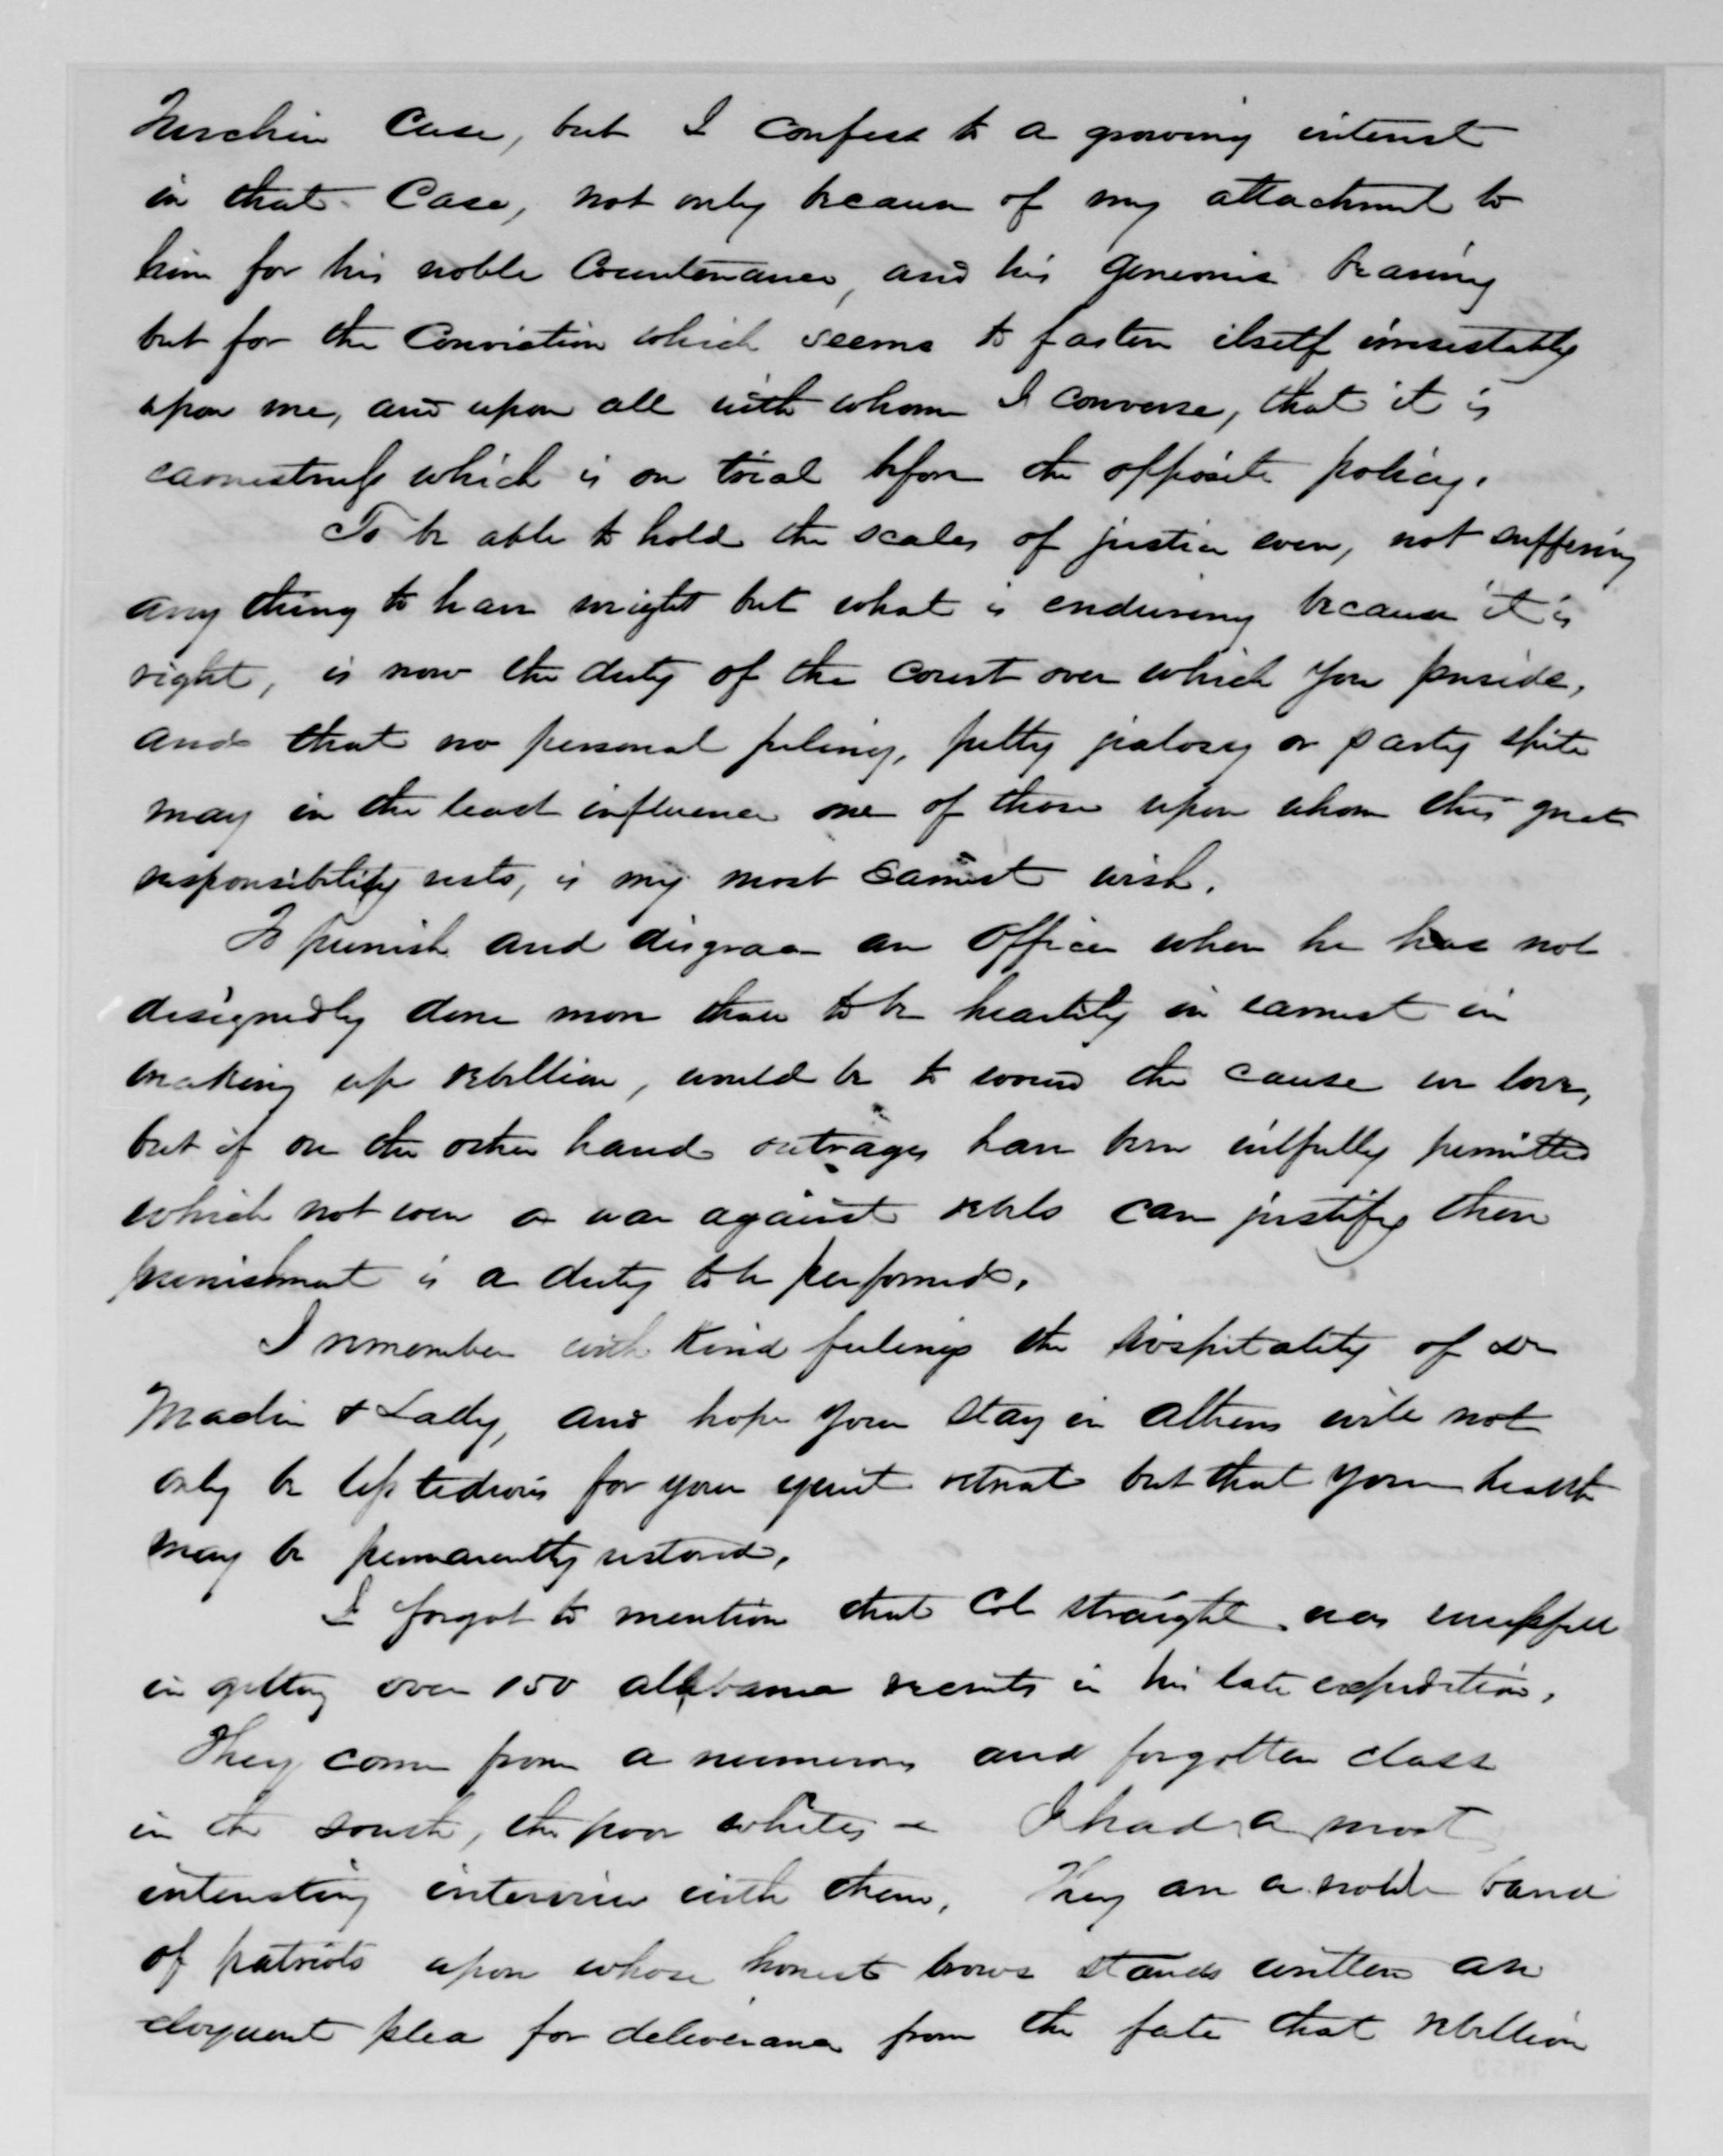 Turchin Case, but I confess to a growing interest
in that Case, not only because of my attachment to
him for his noble Countenance, and his generous bearing
but for the Conviction which seems to fasten itself irresistably
upon me, and upon all with whom I converse, that it is
earnestness which is on trial before the opposite policy.
To be able to hold the scales of justice even, not suffering
any thing to have weight but what is enduring because it is
right, is now the duty of the court over which you preside,
and that no personal feeling, petty jealosy or party spite
may in the least influence one of those upon whom this great
responsibility rests, is my most earnest wish.
To punish and disgrace an officer when he has not
designedly done more than to be heartily in earnest in
making up rebellion, would be to wound the cause we love,
but if on the other hand outrages have been wilfully permitted
which not even a war against rebels can justify then
punishment is a duty to be performed.
I remember with kind feelings the hospitality of Dr
Madin & Lady, and hope your stay in Athens will not
only be less tedious for your quiet retreat but that your health
may be permanently restored.
I forgot to mention that Col straight was successfull
in getting over 150 alabama recruits in his late expedition.
They come from a numerous and forgotten class
in the south, the poor whites – I had a most
interesting interview with them. They are a noble band
of patriots upon whose honest brows stands written an
eloquent plea for deliverance from the fate that rebellion